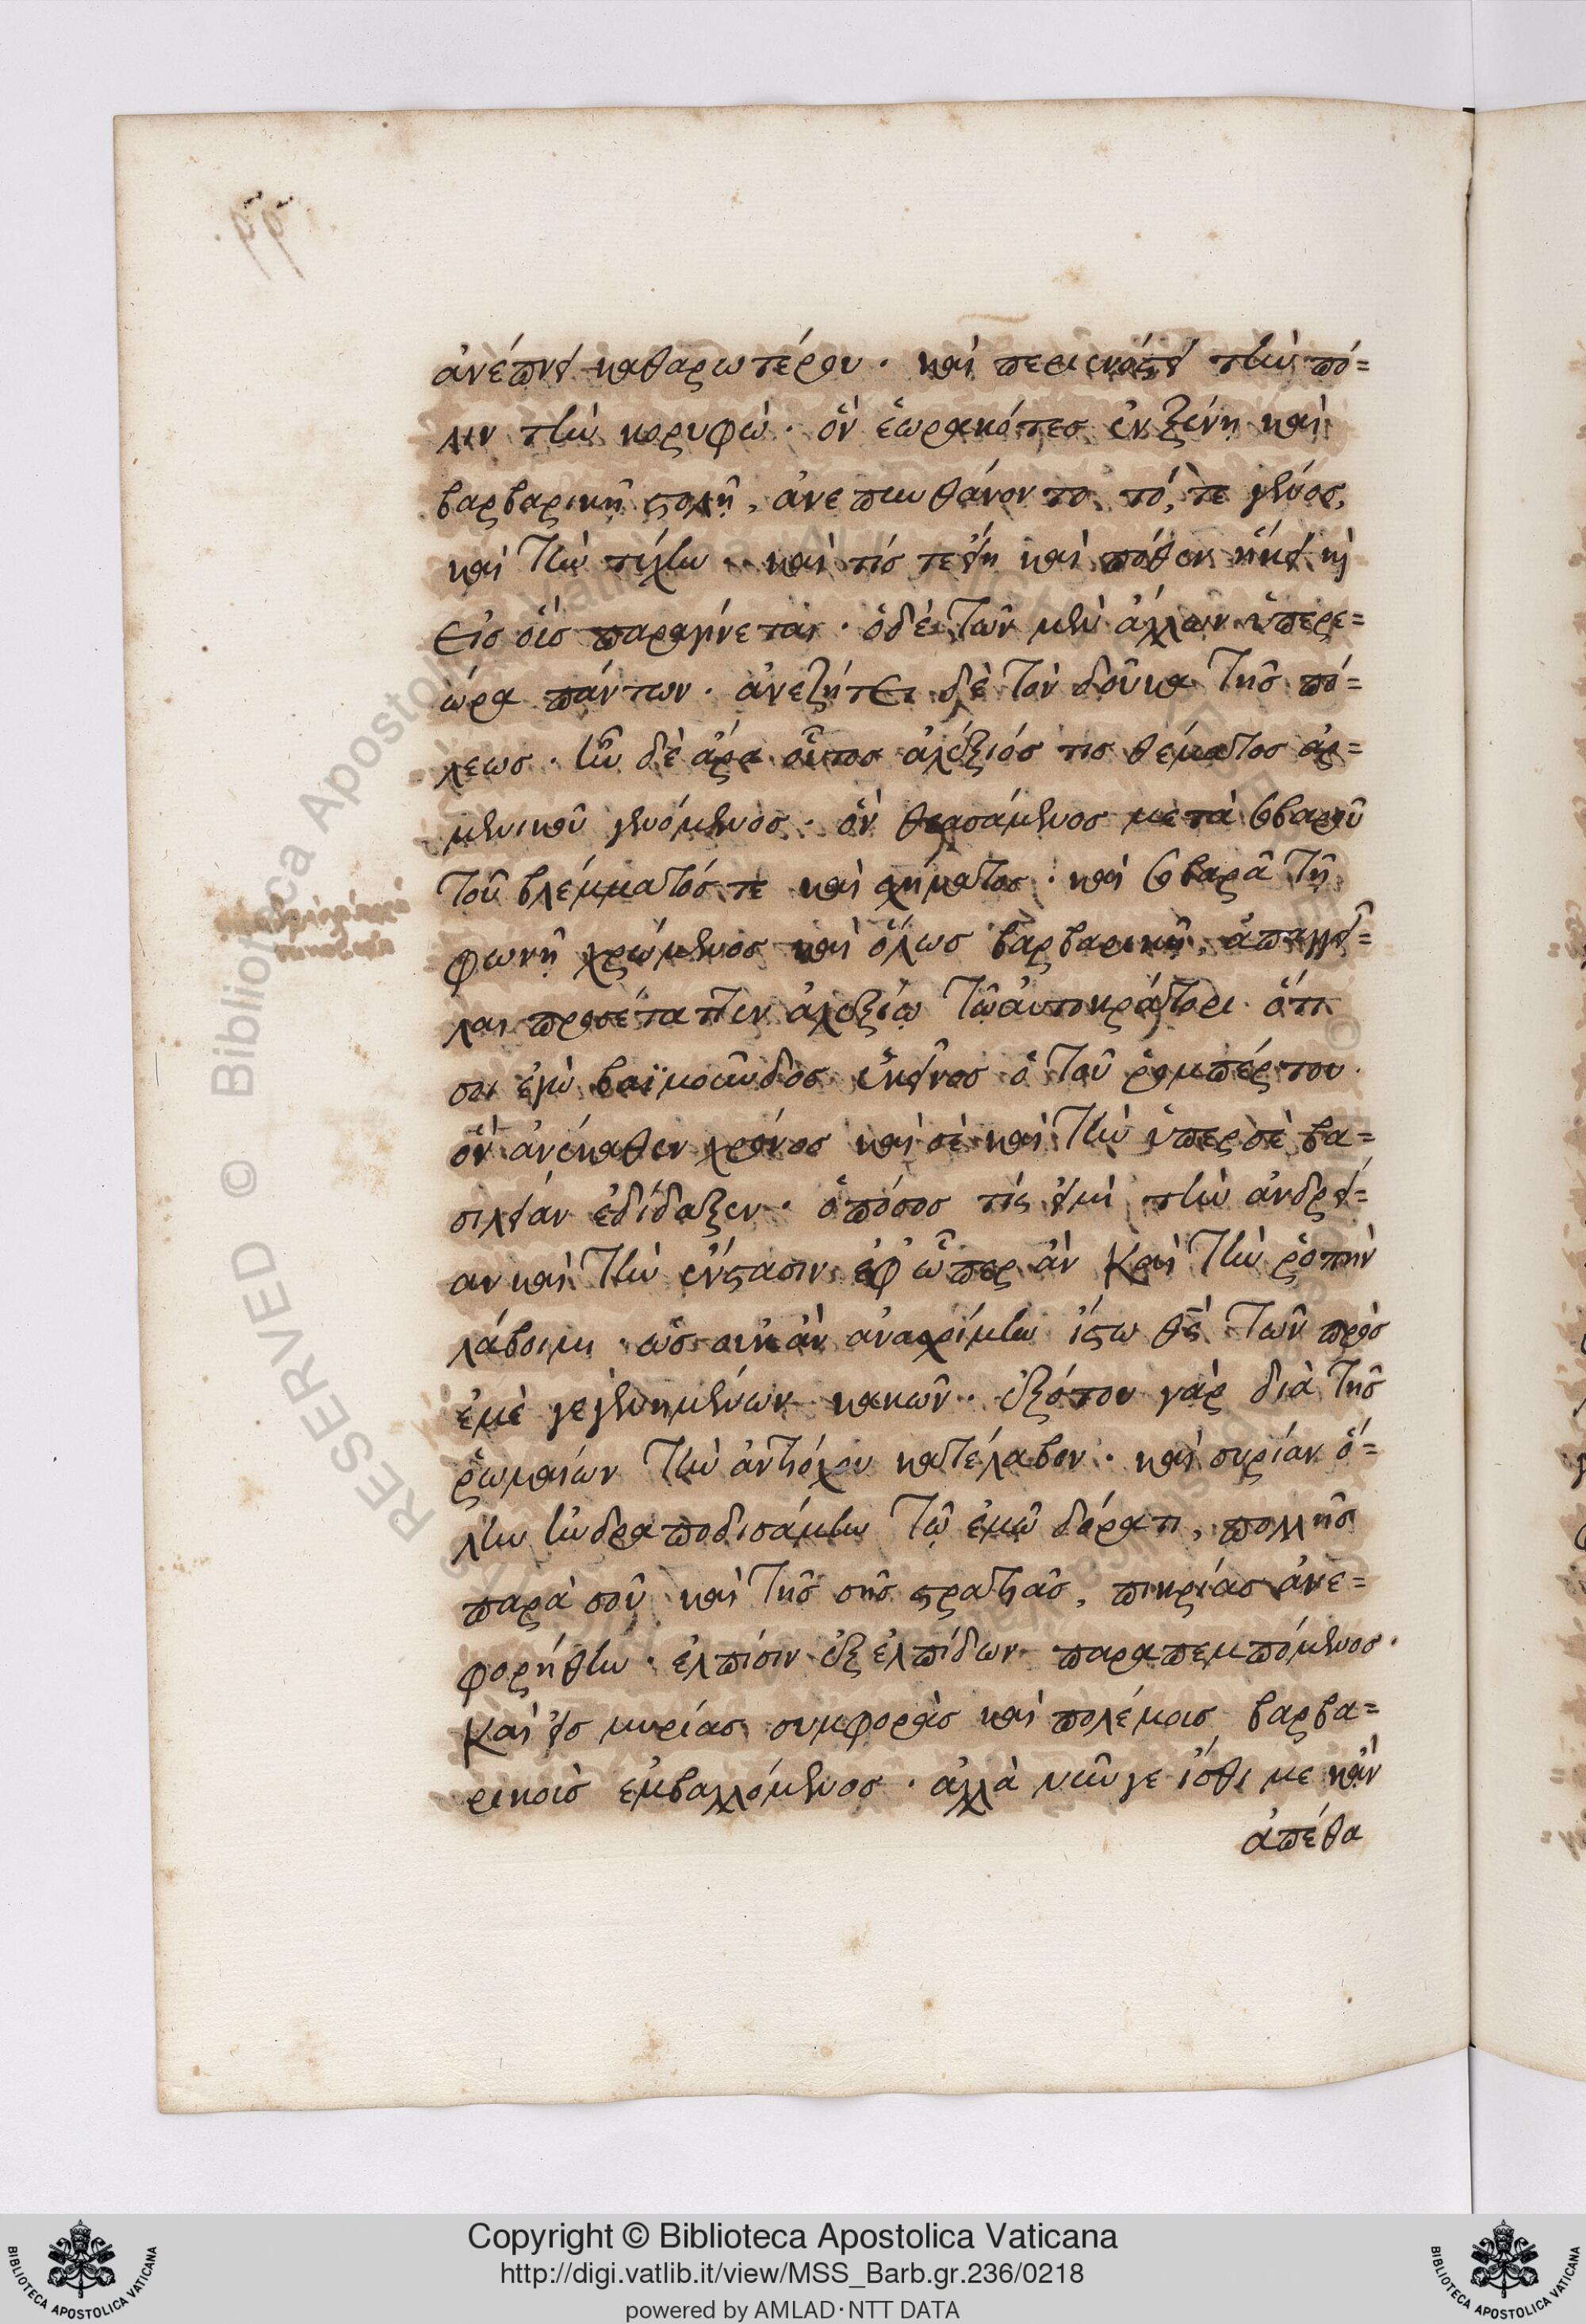 ἀνέπνει καθαρωτέρου· καὶ περιενόστει τὴν πό=
λιν τὴν κορυφώ· ὃν ἑωρακότες ἐν ξένῃ καὶ
βαρβαρικῇ στολῇ, ἀνεπυνθάνοντο τό, τε γένος,
καὶ τὴν τύχην· καὶ τίς τε εἴη καὶ πόθεν ἥκει καὶ
εἰς οἷς παραγίνεται· ὁ δὲ τῶν μὲν ἄλλων ὑπερε=
ώρα πάντων· ἀνεζήτει δὲ τὸν δοῦκα τῆς πό=
λεως· ἦν δὲ ἄρα οὗτος ἀλέξιός τις θέματος ἀρ=
μενικοῦ γενόμενος· ὃν θεασάμενος μετὰ σοβαροῦ
τοῦ βλέμματός τε καὶ σχήματος· καὶ σοβαρᾷ τῇ
φωνῇ χρώμενος καὶ ὅλως βαρβαρικῇ, ἀπαγγεῖ=
λαι προσέταττεν ἀλεξίῳ τῷ αὐτοκράτορι ὅτι
σοι ἐγὼ βαϊμοῦνδος ἐκεῖνος ὁ τοῦ ῥομπέρτου
ὃν ἀνέκαθεν χρόνος καὶ σὲ καὶ τὴν ὑπερ σὲ βα=
σιλείαν ἐδίδαξεν· ὁπόσος τίς εἰμὶ τὴν ἀνδρεί=
αν καὶ τὴν ἔνστασιν ἐφ ὧπερ ἂν καὶ τὴν ῥοπὴν
λάβοιμι ὡς οὐκ ἂν ἀνασχοίμην ἴστω θς τῶν πρὸς
ἐμὲ γεγενημένων κακῶν· ἐξότου γὰρ διὰ τῆς
ῥωμαίων τὴν ἀντιόχου κατέλαβον· καὶ συρίαν ὅ=
λην ἠνδραποδισάμην τῷ ἐμῷ δόρατι, πολλῆς
παρὰ σοῦ καὶ τῆς σῆς στρατιᾶς, πικρίας ἀνε=
φορήθην· ἐλπίσιν ἐξ ἐλπίδων παραπεμπόμενος·
Καὶ εἰς μυρίας συμφορὰς καὶ πολέμοις βαρβα=
ρικοῖς ἐμβαλλόμενος· ἀλλὰ νῦν γε ἴσθι με κἂν
ἀπέθα
RESERVED © Biblioteca Apostolica Vaticana
Copyright © Biblioteca Apostolica Vaticana
http://digi.vatlib.it/view/MSS_Barb.gr.236/0218
powered by AMLAD·NTT DATA
BIBLIOTECA APOSTOLICA VATICANA
BIBLIOTECA APOSTOLICA VATICANA